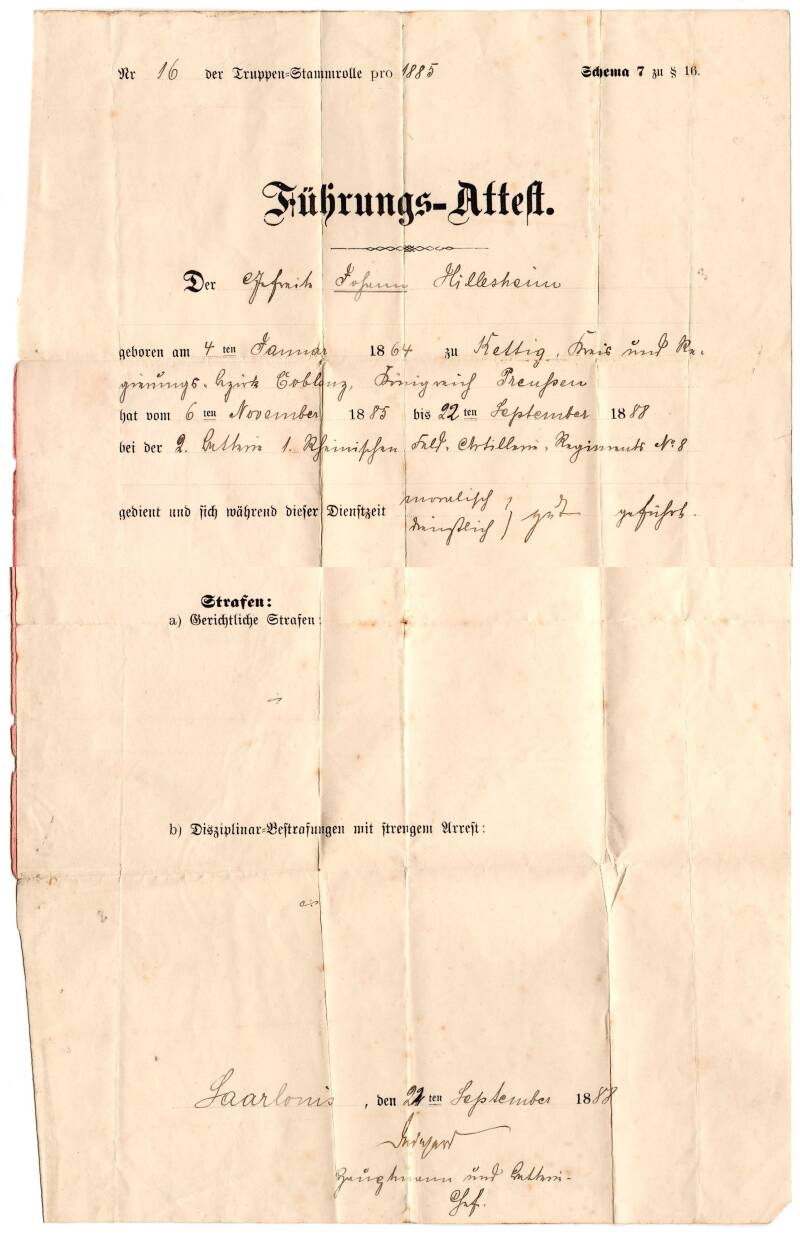 Nr 16 der Truppen-Stammrolle pro 1885 Schema 7 zu § 16.
Führungs-Attest.
Der Gefreite Johann Hillesheim
geboren am 4 ten Januar 1864 zu Kettig, Kreis und Re-
gierungs-bezirk Coblenz, Königreich Preußen
hat vom 6 ten November 1885 bis 22 ten September 1888
bei der 2. Batterie 1. Rheinischen Feld-Artillerie-Regiments No 8
gedient und sich während dieser Dienstzeit moralisch
dienstlich } gut geführt.
Strafen:
a) Gerichtliche Strafen:
b) Disziplinar-Bestrafungen mit strengem Arrest:
Saarlouis, den 22 ten September 1888
Hauptmann und Batterie-
Chef.